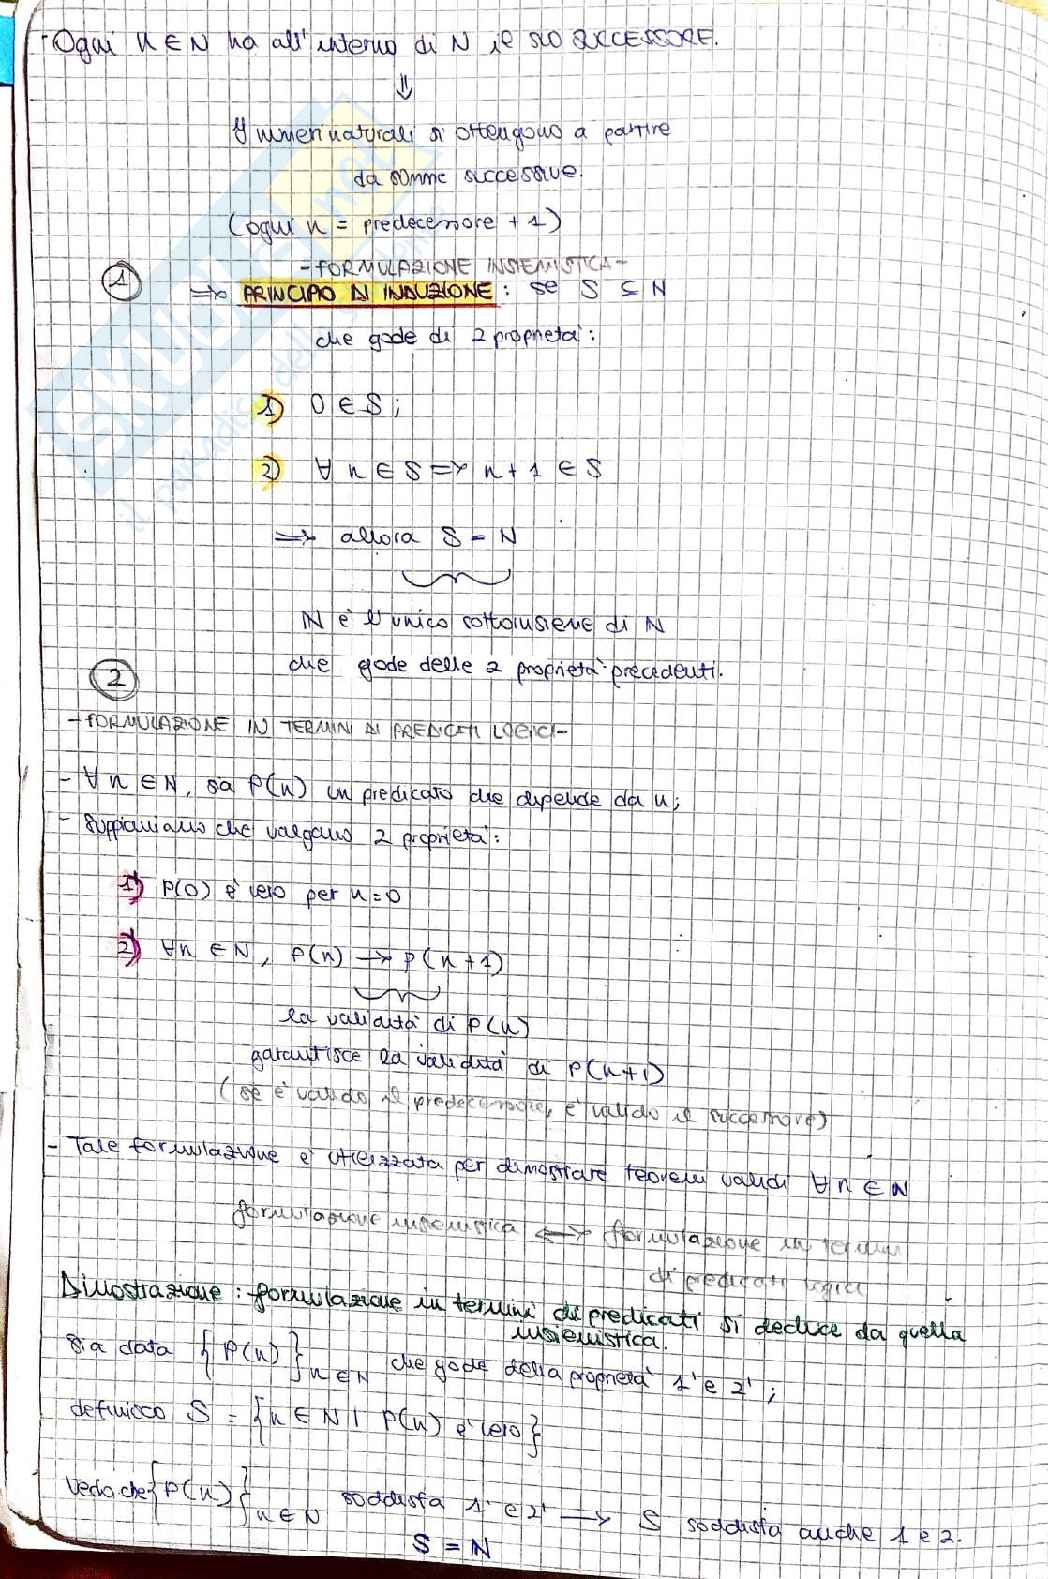 - Ogni n ∈ N ha all'interno di N il suo SUCCESSORE.
⇓
I numeri naturali si ottengono a partire
da somme successive.
(ogni n = predecessore + 1)
- FORMULAZIONE INSIEMISTICA -
① => PRINCIPIO DI INDUZIONE: se S ⊆ N
che gode di 2 proprietà:
1) 0 ∈ S;
2) ∀ n ∈ S => n + 1 ∈ S
=> allora S = N
N è l'unico sottoinsieme di N
che gode delle 2 proprietà precedenti.
②
- FORMULAZIONE IN TERMINI DI PREDICATI LOGICI -
- ∀ n ∈ N, sia P(n) un predicato che dipende da n;
- Supponiamo che valgano 2 proprietà:
1') P(0) è vero per n = 0
2') ∀n ∈ N, P(n) → P(n+1)
la validità di P(n)
garantisce la validità di P(n+1)
(se è valido il predecessore, è valido il successore)
- Tale formulazione è utilizzata per dimostrare teoremi validi ∀ n ∈ N
formulazione insiemistica ↔ formulazione in termini
di predicati logici
Dimostrazione: formulazione in termini di predicati si deduce da quella
insiemistica.
Sia data {P(n)} n ∈ N che gode della proprietà 1' e 2';
definisco S = {n ∈ N | P(n) è vero}
{P(n)} n ∈ N soddisfa 1' e 2' → S soddisfa anche 1 e 2.
S = N
SKUOLA.net